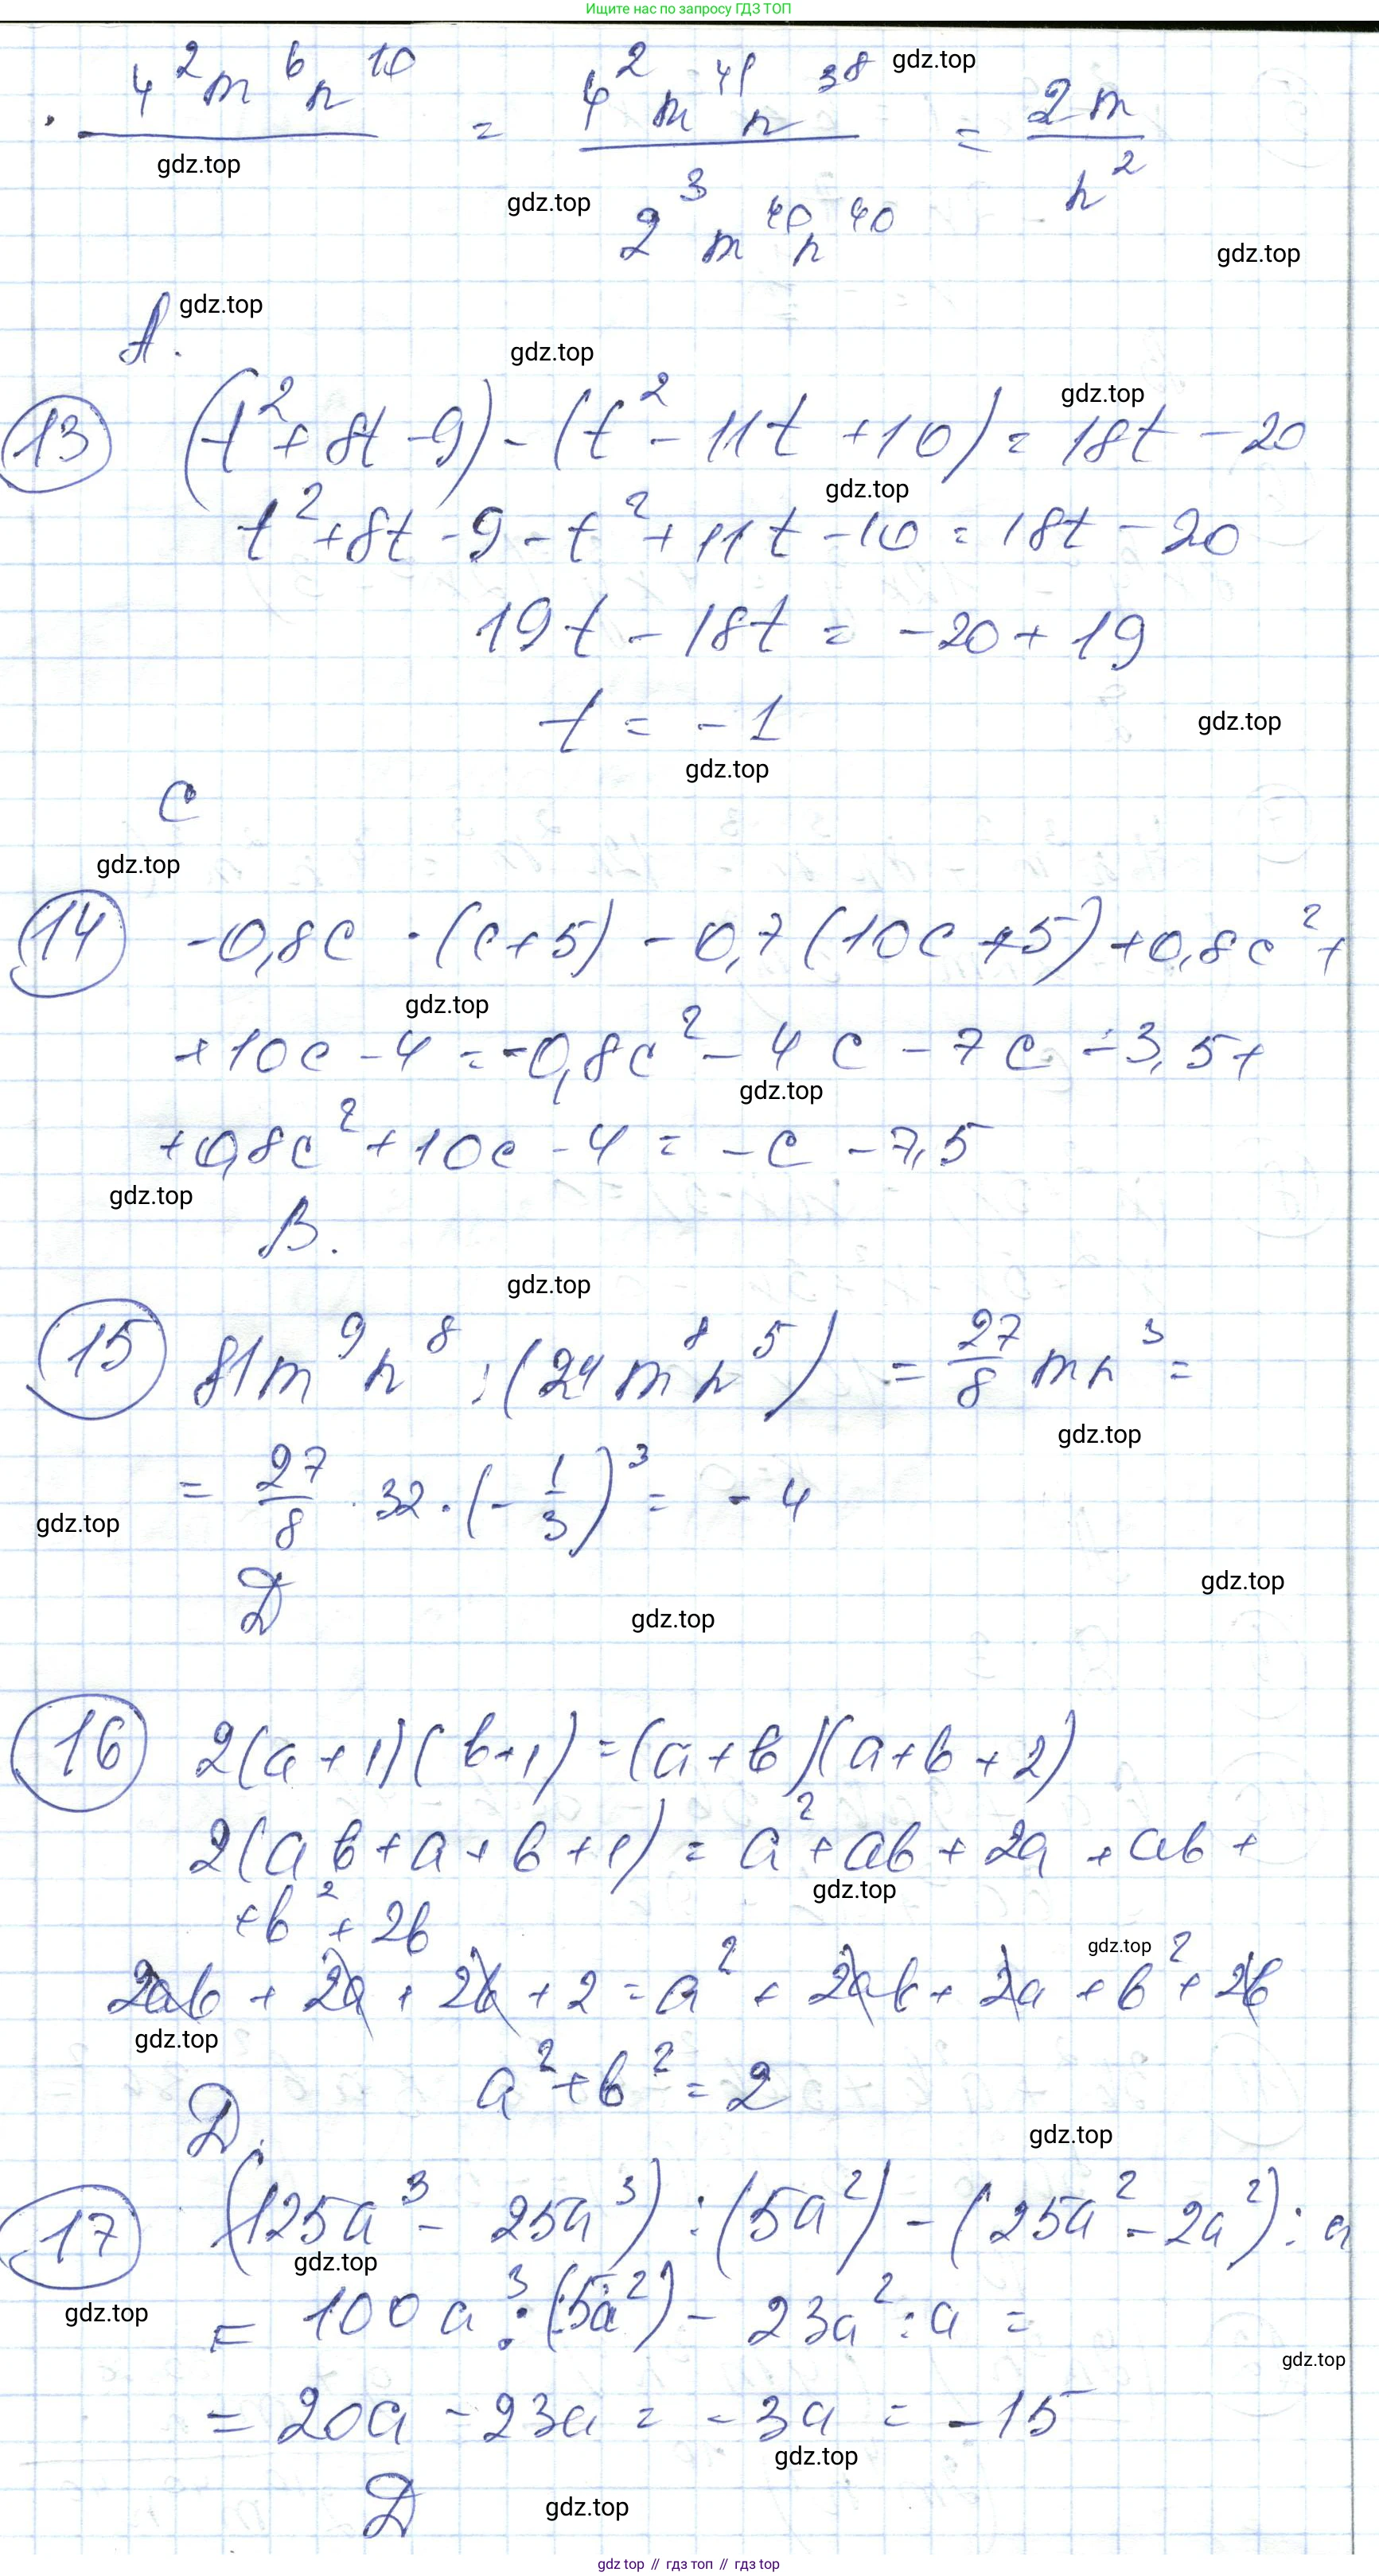 Ищите нас по запросу ГДЗ ТОП
· 4²m⁶n¹⁰ / = 4²m⁴¹n³⁸ / 2³m⁴⁰n⁴⁰ = 2m / n²
gdz.top
gdz.top
gdz.top
gdz.top
A. gdz.top
gdz.top
gdz.top
13 (t²+8t-9)-(t²-11t+10)=18t-20
gdz.top
t²+8t-9-t²+11t-10=18t-20
19t-18t=-20+19
t=-1
gdz.top
gdz.top
C
gdz.top
14 -0,8c·(c+5)-0,7(10c+5)+0,8c²+
gdz.top
+10c-4=-0,8c²-4c-7c-3,5+
gdz.top
+0,8c²+10c-4=-c-7,5
gdz.top
B.
gdz.top
15 81m⁹n⁸:(24m⁸n⁵)=27/8 mn³=
gdz.top
=27/8·32·(-1/3)³=-4
gdz.top
D
gdz.top
gdz.top
16 2(a+1)(b+1)=(a+b)(a+b+2)
2(ab+a+b+1)=a²+ab+2a+ab+
gdz.top
+b²+2b
gdz.top
2ab+2a+2b+2=a²+2ab+2a+b²+2b
gdz.top
a²+b²=2
D.
gdz.top
17 (125a³-25a³):(5a²)-(25a²-2a²):a
gdz.top
gdz.top
=100a³:(5a²)-23a²:a=
gdz.top
=20a-23a=-3a=-15
gdz.top
D
gdz.top
gdz top // гдз топ // гдз top